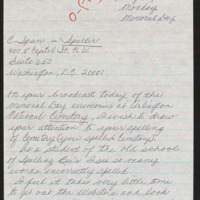 Monday
Memorial Day
C-Span - Speller
400 N Capitol St. N.W.
Suite 650
Washington, D.C. 20001
In your broadcast today of the
Memorial Day ceremonies at Arlington
National Cemetery, I wish to draw
your attention to your spelling
of Cemetery (you spelled Cemetary)
As a student of the old school
of Spelling Bees I see so many
words incorrectly spelled.
I feel it takes very little time
to get out the Webster's and look